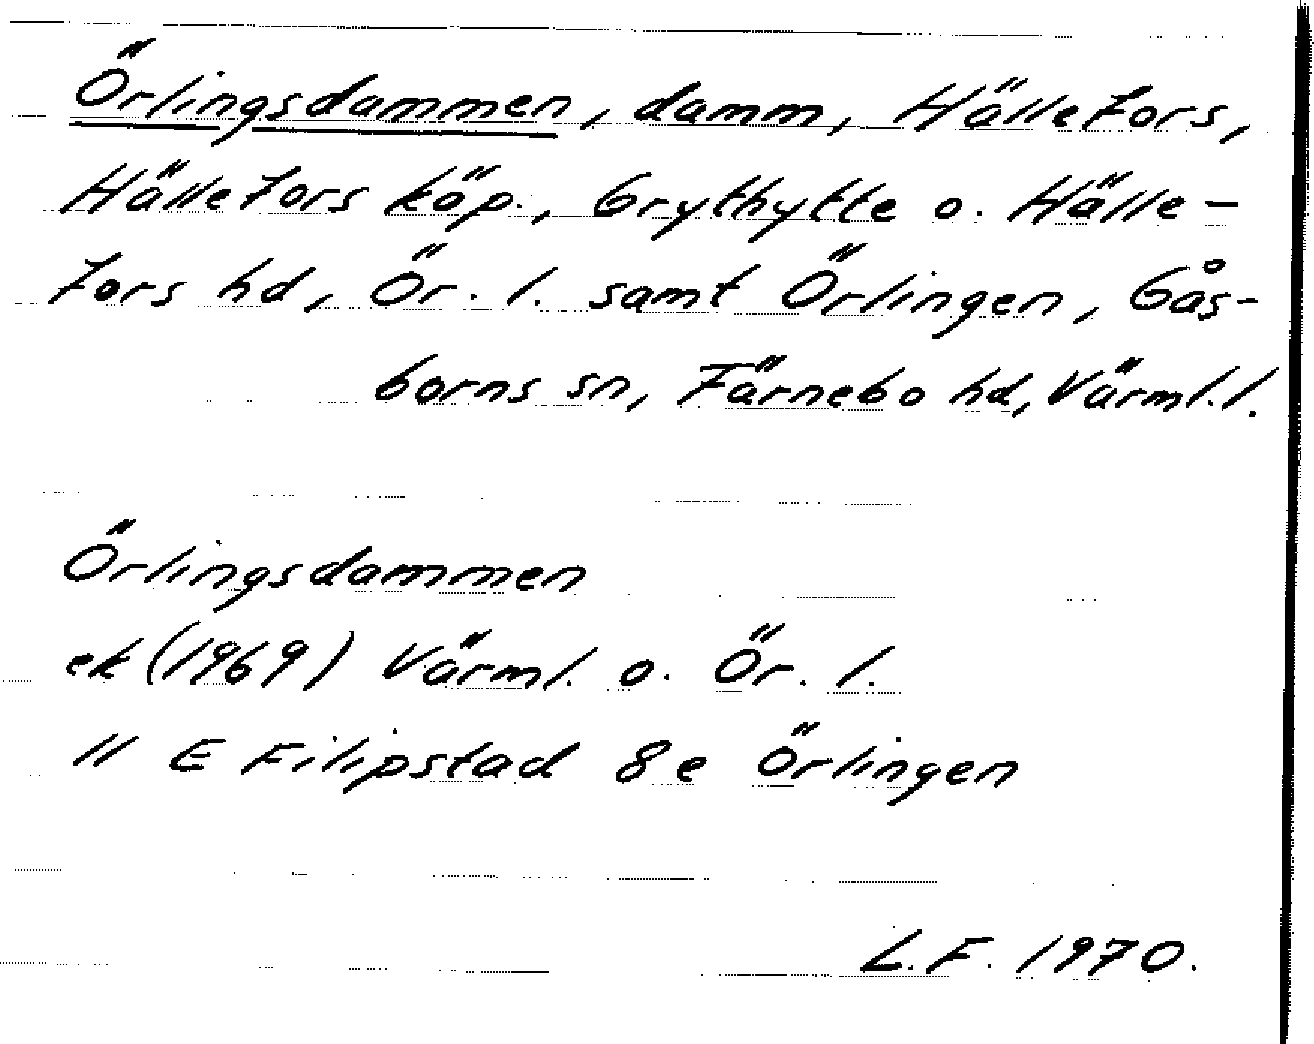 Örlingsdammen, damm, Hällefors,
Hällefors köp., Grythytte o. Hälle-
fors hd, Ör. l. samt Örlingen, Gås-
borns sn, Färnebo hd, Värml.l.
Örlingsdammen
ek (1969) Värml. o. Ör. l.
11 E Filipstad 8e Örlingen
L.F. 1970.